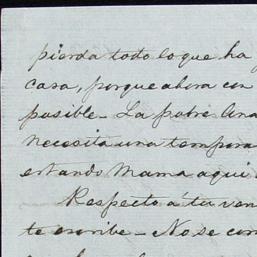 pierda todo lo que ha
casa, porque ahora con
posible - La pobre Ana
necesita una tempora
estando Mama aqui
Respecto á tu ven
te escribe - No se com